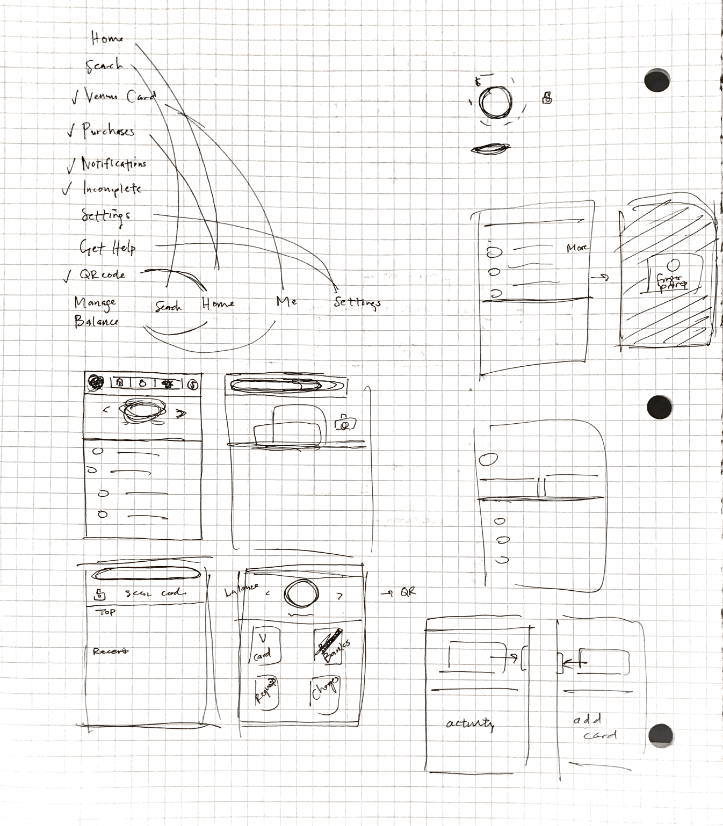 Home
Search
✓ Venmo Card
✓ Purchases
✓ Notifications
✓ Incomplete
Settings
Get Help
✓ QR code
Manage
Balance
Search Home Me Settings
More
Finger
print
scan card
TOP
Recent
balance
< >
→ QR
V
card
Banks
Request
Charges
activity
add
card